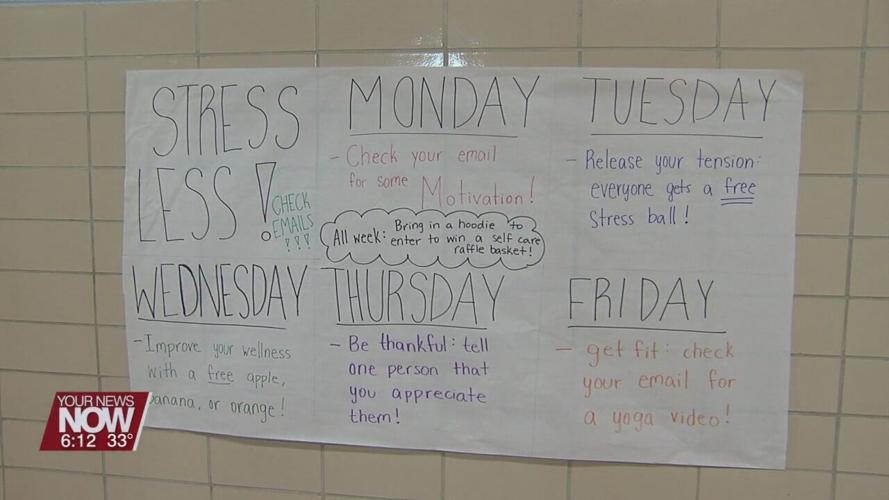 STRESS
LESS!
CHECK
EMAILS
!!!
MONDAY
- Check your email
for some Motivation!
All week: Bring in a hoodie to
enter to win a self care
raffle basket!
TUESDAY
- Release your tension:
everyone gets a free
Stress ball!
WEDNESDAY
- Improve your wellness
with a free apple,
banana, or orange!
THURSDAY
- Be thankful: tell
one person that
you appreciate
them!
FRIDAY
- get fit: check
your email for
a yoga video!
YOUR NEWS
NOW
6:12 33°